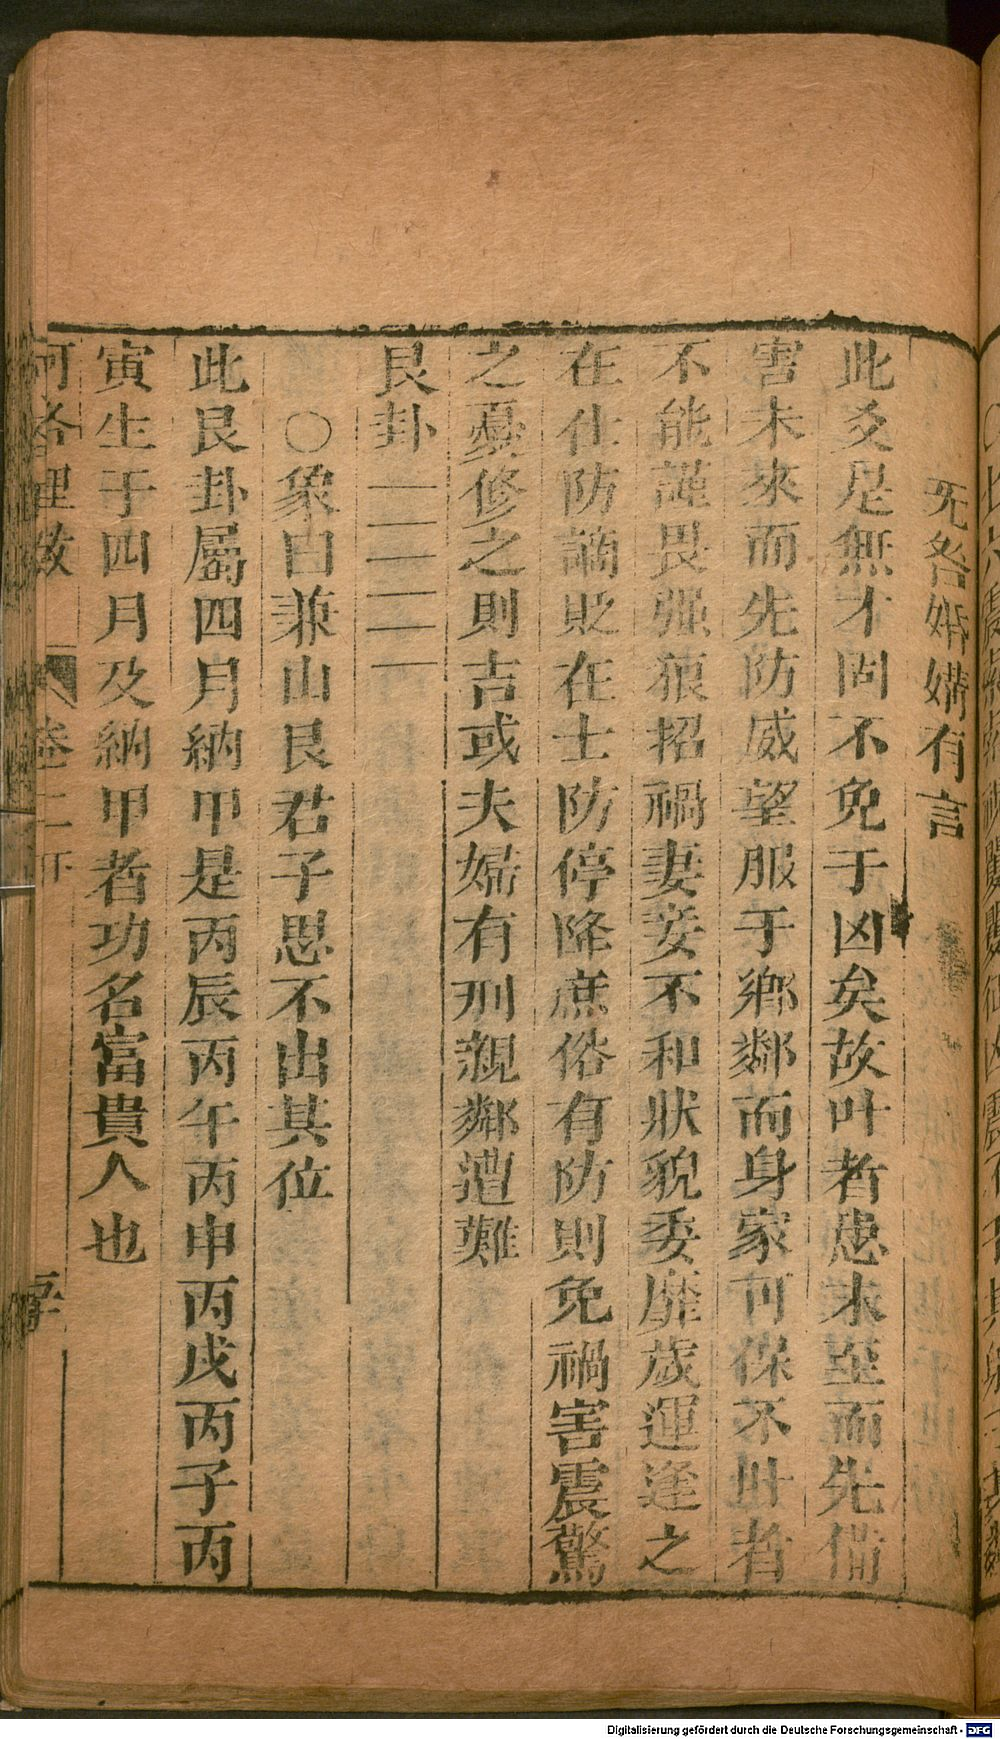 无咎婚媾有言
此爻是無才固不免于凶矣故叶者患未至而先備
害未來而先防威望服于鄉鄰而身家可保不叶者
不能謹畏强狼招禍妻妾不和狀貌委靡歲運逢之
在仕防謫貶在士防停降庶俗有防則免禍害震驚
之憂修之則吉或夫婦有刑親鄰遭難
艮卦
○象曰兼山艮君子思不出其位
此艮卦屬四月納甲是丙辰丙午丙申丙戌丙子丙
寅生于四月及納甲者功名富貴人也
河洛理數 卷二
Digitalisierung gefördert durch die Deutsche Forschungsgemeinschaft - DFG